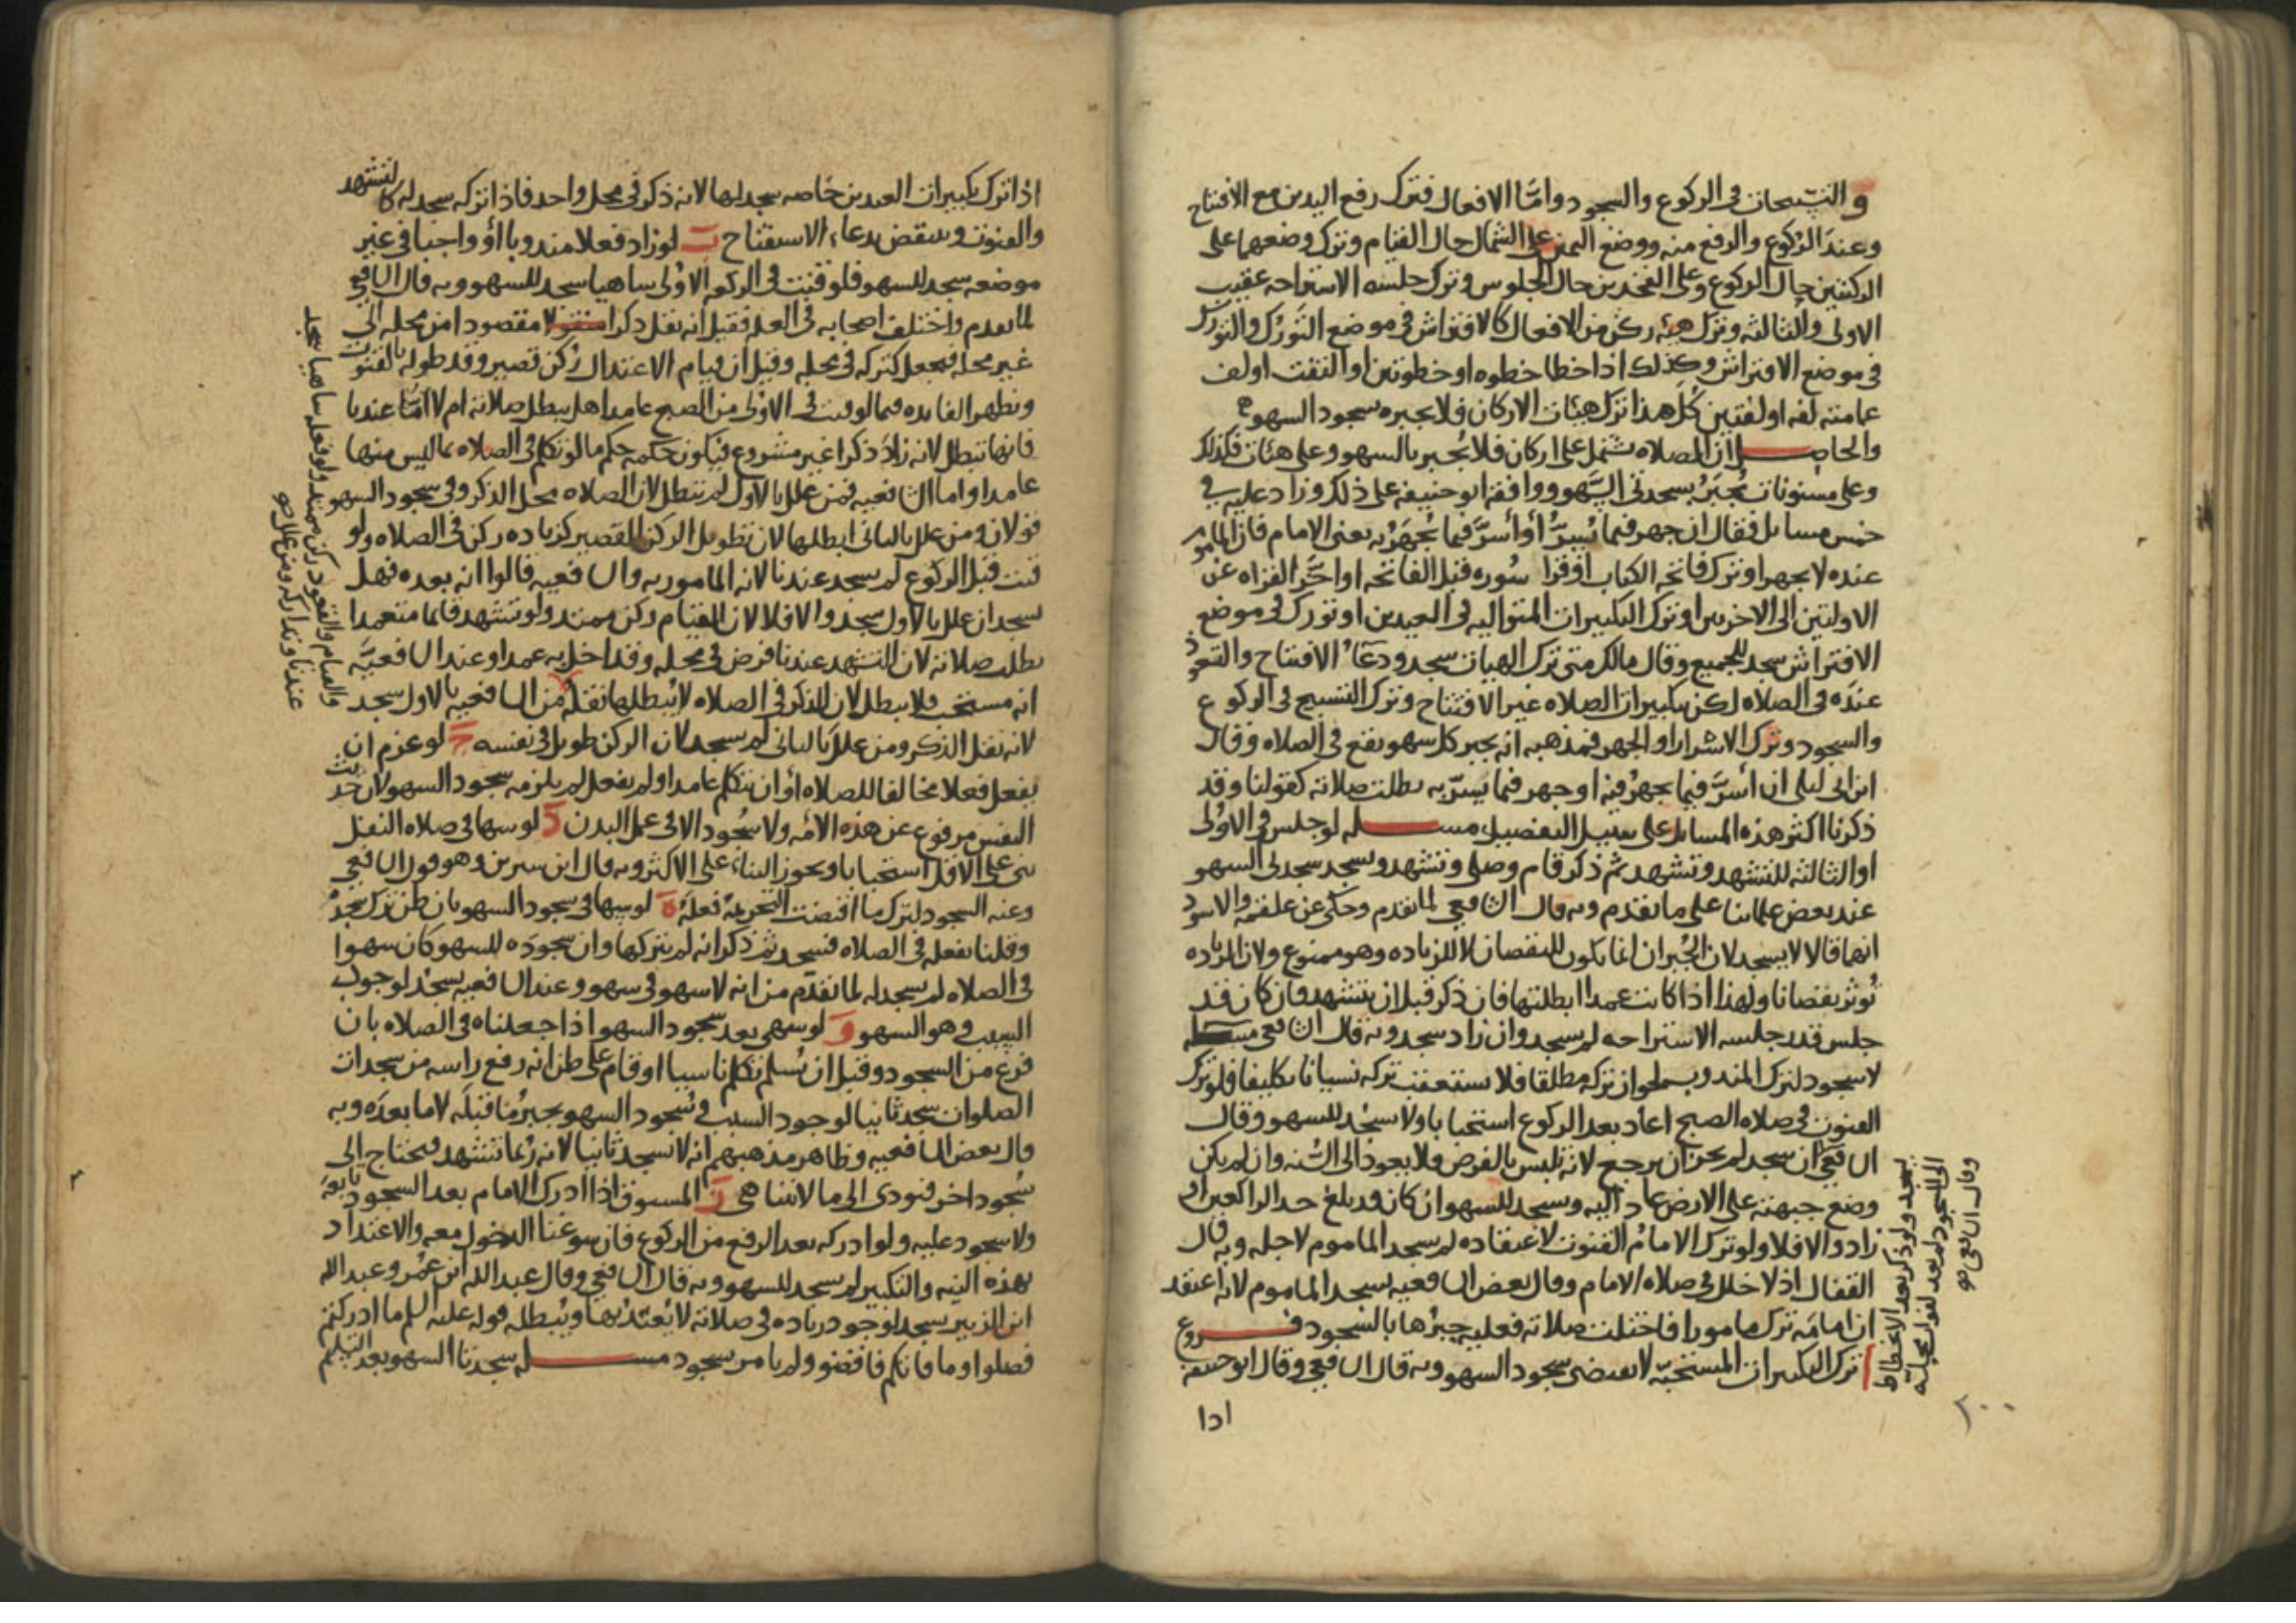 و التسبيحات في الركوع والسجود واما الافعال فترك رفع اليدين مع الافتتاح
وعند الركوع والرفع منه ووضع اليمين على الشمال حال القيام وترك وضعهما على
الركبتين حال الركوع وعلى الفخذين حال الجلوس وترك جلسه الاستراحه عقيب
الاولى والثالثه وترك هيئه ركن من الافعال كالافتراش في موضع التورك والتورك
في موضع الافتراش وكذلك اذا خطا خطوه او خطوتين او التفت او لف
عمامته لفه او لفتين كل هذا ترك هيئات الاركان فلا يجبره سجود السهو
والحاصل ان الصلاه تشتمل على اركان فلا تجبر بالسهو وعلى هيئات فكذلك
وعلى مسنونات تجبر بسجدتي السهو ووافقه ابو حنيفه على ذلك وزاد عليه في
خمس مسايل فقال ان جهر فيما يسر او أسر فيما يجهر به يعنى الامام فان الماموم
عنده لا يجهر او ترك فاتحه الكتاب او قرا سوره قبل الفاتحه او اخر القراه عن
الاولتين الى الاخريين او ترك التكبيرات المتواليه في العيدين او تورك في موضع
الافتراش سجد للجميع وقال مالك متى ترك الهيات سجد ودعا الافتتاح والتعوذ
عنده في الصلاه لكن تكبيرات الصلاه غير الافتتاح وترك التسبيح في الركوع
والسجود وترك الاسرار او الجهر فمذهبه انه يجبر كل سهو يقع في الصلاه وقال
ابن ابى ليلى ان أسر فيما يجهر فيه او جهر فيما يسر به بطلت صلاته كقولنا وقد
ذكرنا اكثر هذه المسايل على سبيل التفصيل مسله لو جلس في الاولى
او الثالثه للتشهد وتشهد ثم ذكر قام وصلى وتشهد ويسجد سجدتي السهو
عند بعض علمائنا على ما تقدم وبه قال الشافعي لما تقدم وحكى عن علقمه والاسود
انهما قالا لا يسجد لان الجبران انما يكون للنقصان لا للزياده وهو ممنوع ولان الزياده
تؤثر نقصانا ولهذا اذا كانت عمدا ابطلتها فان ذكر قبل ان يتشهد فان كان قد
جلس قدر جلسه الاستراحه لم يسجد وان زاد سجد وبه قال الشافعي مسله
لا سجود لترك المندوب لجواز تركه مطلقا فلا يستعقب تركه نسيانا تكليفا فلو ترك
القنوت في صلاه الصبح اعاد بعد الركوع استحبابا ولا يسجد للسهو وقال
الشافعي ان سجد لم يجز ان يرجع لانه تلبس بالفرض فلا يعود الى السنه وان لم يكن
وضع جبهته على الارض عاد اليه ويسجد للسهو ان كان قد بلغ حد الراكعين او
زاد والا فلا ولو ترك الامام القنوت لاعتقاده لم يسجد الماموم لاجله وبه قال
القفال اذ لا خلل في صلاه الامام وقال بعض الشافعيه يسجد الماموم لانه اعتقد
ان امامه ترك مامورا فاختلت صلاته فعليه جبرها بالسجود فروع
ا ترك التكبيرات المستحبه لا يقتضى سجود السهو وبه قال الشافعي وقال ابو حنيفه
يسجد ولو ذكر بعد الانحطاط
الى السجود لم يعد لفوات محله
وقال الشافعي صح
اذا
٢٠٠
اذا ترك تكبيرات العيدين خاصه سجد لها لانه ذكر في محل واحد فاذا تركه سجد له كالتشهد
والقنوت وينقض بدعاء الاستفتاح ب لو زاد فعلا مندوبا أو واجبا في غير
موضعه سجد للسهو فلو قنت في الركعه الاولى ساهيا سجد للسهو وبه قال الشافعي
لما تقدم واختلف اصحابه في العله فقيل انه نقل ذكرا مقصودا من محله الى
غير محله فيجعل كتركه في محله وقيل ان قيام الاعتدال ركن قصير وقد طوله بالقنوت
وتظهر الفايده فيما لو قنت في الاولى من الصبح عامدا هل يبطل صلاته ام لا اما عندنا
فانها تبطل لانه زاد ذكرا غير مشروع فيكون حكمه حكم ما لو تكلم في الصلاه بما ليس منها
عامدا واما الشافعيه فمن علل بالاول لم تبطل لان الصلاه محل الذكر وفي سجود السهو
قولان ومن علل بالثاني ابطلها لان تطويل الركن القصير كزياده ركن في الصلاه ولو
قنت قبل الركوع لم يسجد عندنا لانه المامور به والشافعيه قالوا انه بعده فهل
يسجد ان علل بالاول سجد والا فلا لان القيام ركن ممتد ولو تشهد قائما متعمدا
بطلت صلاته لان التشهد عندنا فرض في محله وقد اخل به عمدا وعند الشافعيه
انه مستحب فلا يبطل لان الذكر في الصلاه لا يبطلها نقله من الشافعيه بالاول سجد
لانه نقل الذكر ومن علل بالثاني لم يسجد لان الركن طويل في نفسه ج لو عزم ان
يفعل فعلا مخالفا للصلاه أو ان يتكلم عامدا ولم يفعل لم يلزمه سجود السهو لان حديث
النفس مرفوع عن هذه الامه ولا سجود الا في عمل البدن د لو سها في صلاه النفل
بنى على الاقل استحبابا ويجوز البناء على الاكثر وبه قال ابن سيرين وهو قول الشافعي
وعنه السجود لترك ما اقتضت التحريمه فعله ه لو سها في سجود السهو بان ظن ترك سجده
وقلنا يفعله في الصلاه فسجد ثم ذكر انه لم يتركها وان سجوده للسهو كان سهوا
في الصلاه لم يسجد له لما تقدم من انه لا سهو في سهو وعند الشافعيه يسجد لوجوب
السبب وهو السهو و لو سهى بعد سجود السهو اذا جعلناه في الصلاه بان
فرغ من السجود وقبل ان يسلم تكلم ناسيا او قام على ظن انه رفع راسه من سجدات
الصلوات سجد ثانيا لوجود السبب وسجود السهو يجبر ما قبله لا ما بعده وبه
قال بعض الشافعيه وظاهر مذهبهم انه لا يسجد ثانيا لانه ربما تشهد فيحتاج الى
سجود اخر فيؤدى الى ما لا يتناهى ز المسبوق اذا ادرك الامام بعد السجود تابعه
ولا سجود عليه ولو ادركه بعد الرفع من الركوع فان سوغنا الدخول معه والاعتداد
بهذه النيه والتكبير لم يسجد للسهو وبه قال الشافعي وقال عبد الله ابن عمر وعبد الله
ابن الزبير يسجد لوجود زياده في صلاته لا يعتد بها ويبطله قوله عليه السلم ما ادركتم
فصلوا وما فاتكم فاقضوا ولم يامر بسجود مسله سجدتا السهو بعد التسليم
والقيام والقعود ركن ممتد ولو فعله ساهيا سجد
عندنا وتداركه ومن علل صح